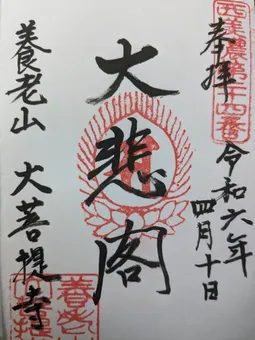 奉拝
西美濃第三十四番
令和六年
四月十日
大悲閣
養老山 大菩提寺